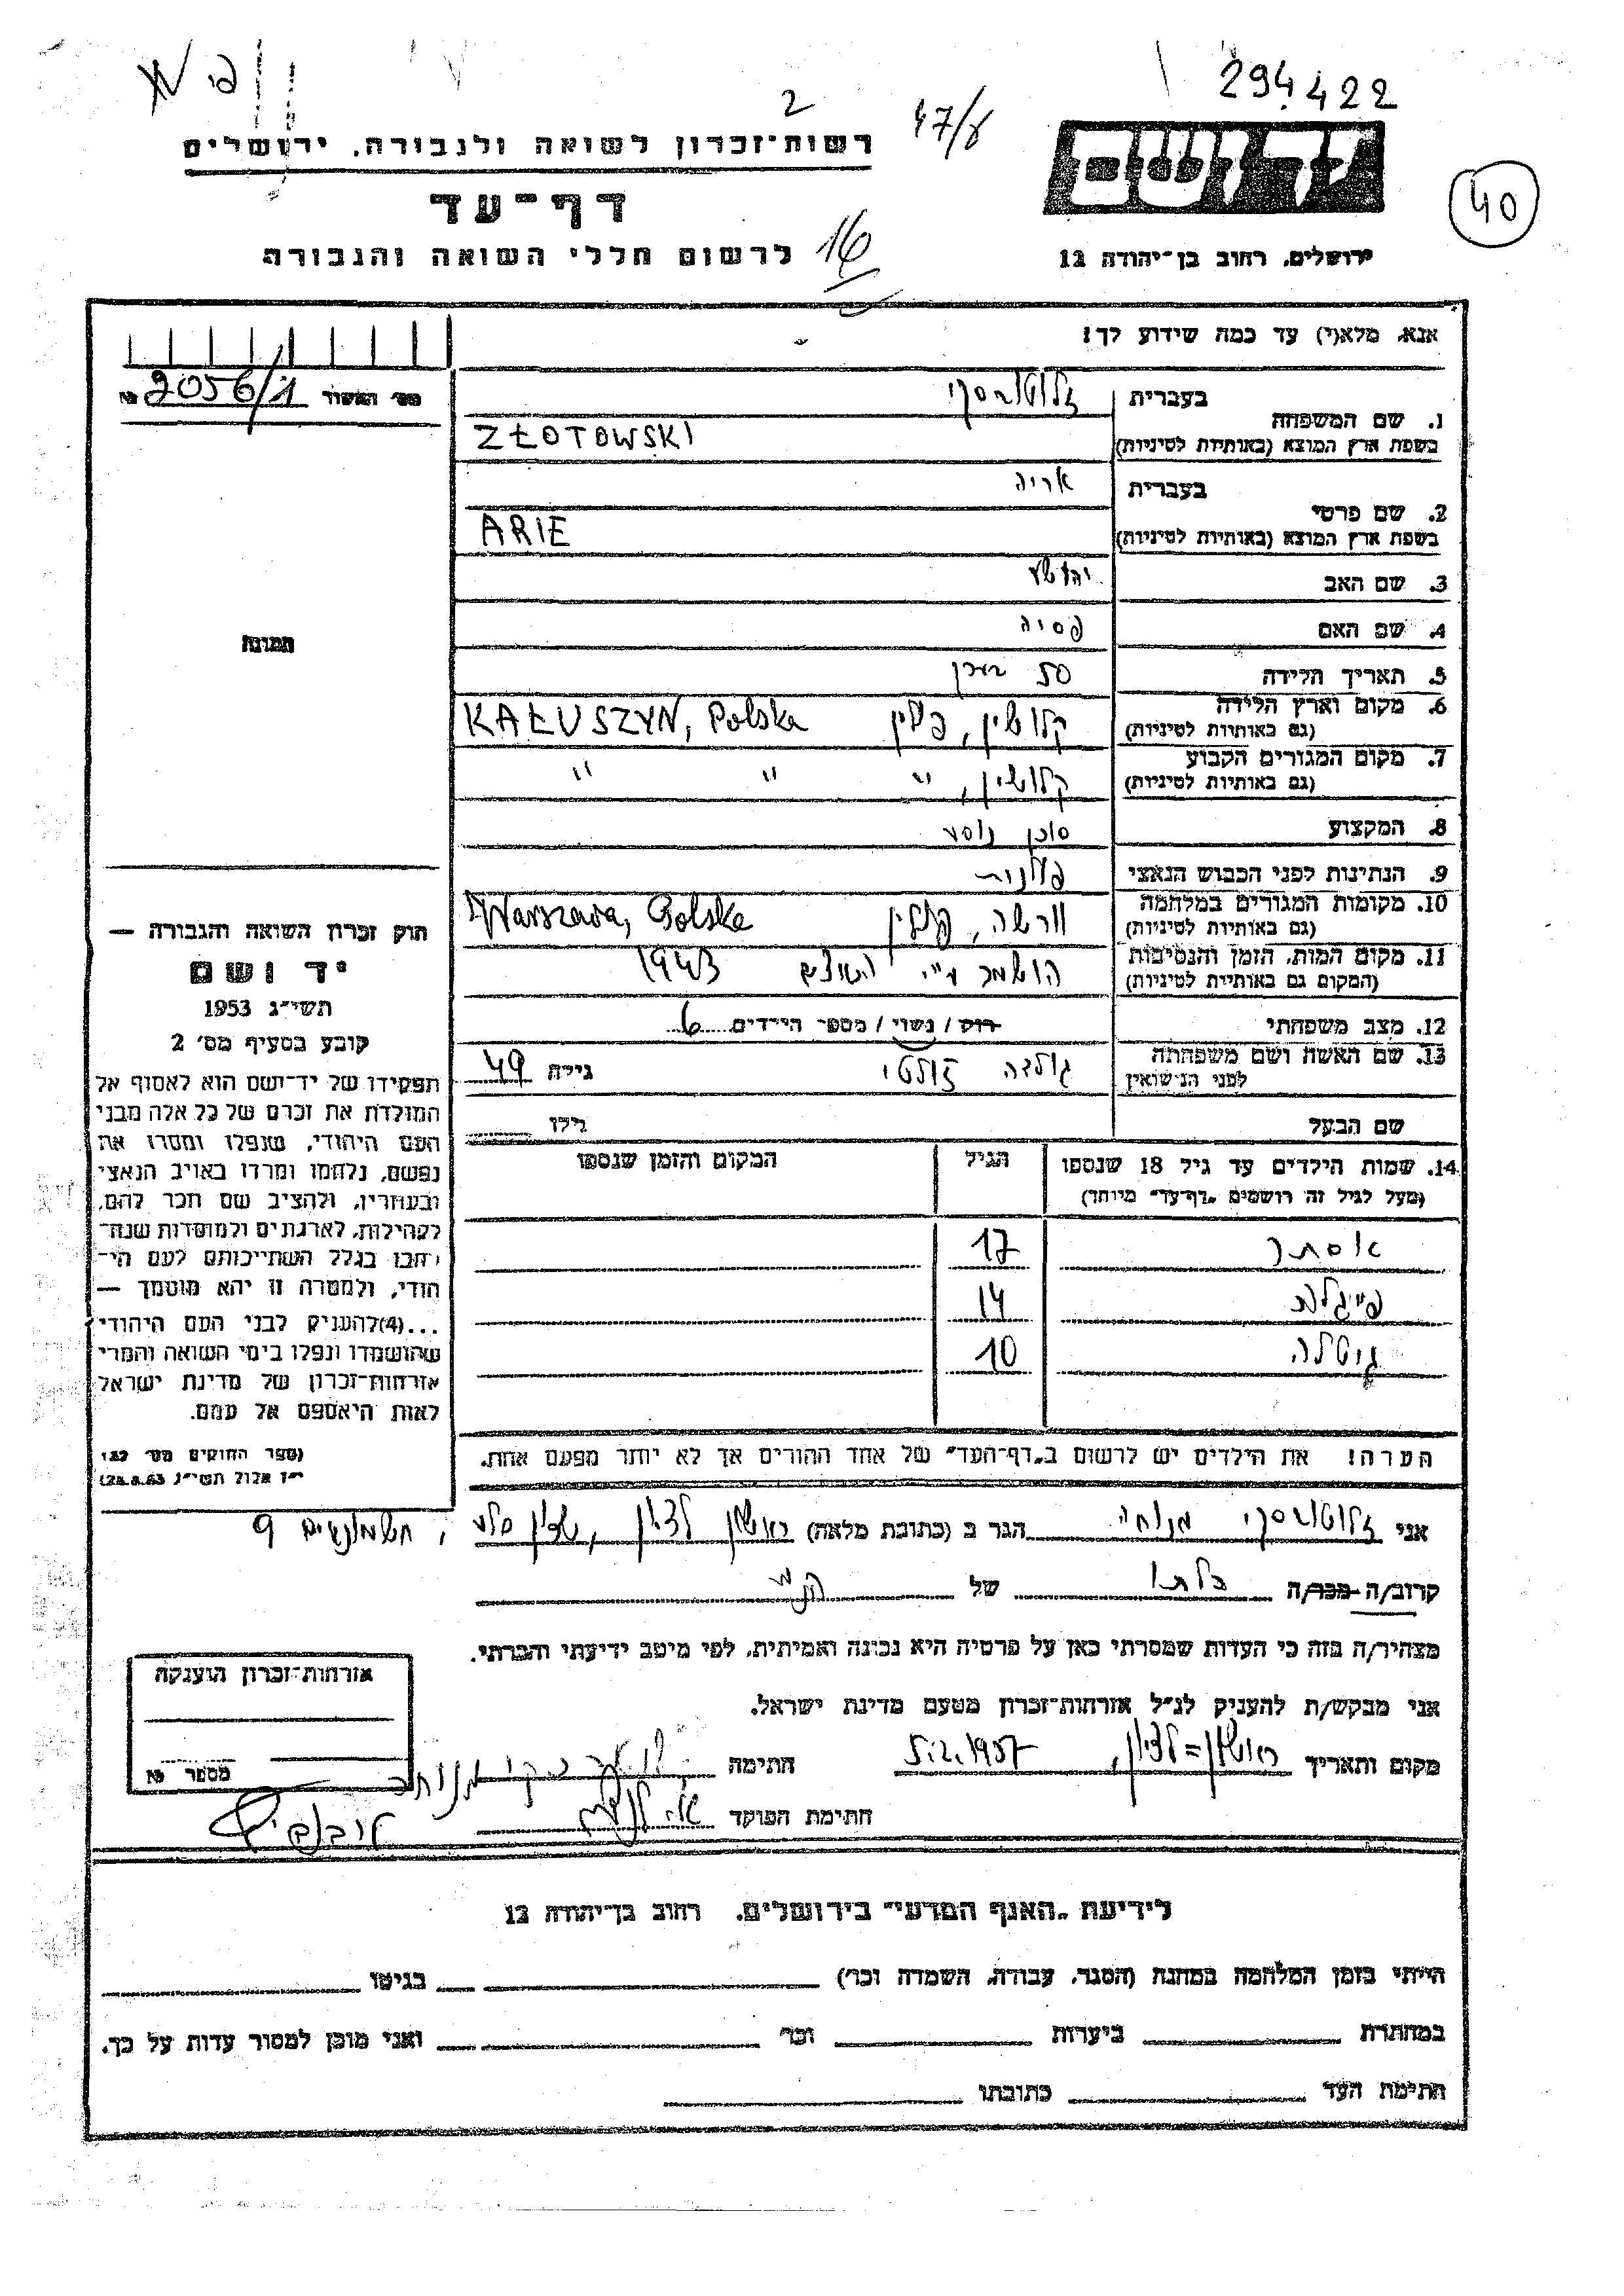 294422
40
47/8
2
רשות-זכרון לשואה ולגבורה, ירושלים
דף-עד
לרשום חללי השואה והגבורה
16
יד ושם
ירושלים, רחוב בן-יהודה 12
אנא, מלא(י) עד כמה שידוע לך!
מס׳ האשור 2056/1 №
1. שם המשפחה
בעברית זלוטובסקי
בשפת ארץ המוצא (באותיות לטיניות) ZŁOTOWSKI
2. שם פרטי
בעברית אריה
בשפת ארץ המוצא (באותיות לטיניות) ARIE
3. שם האב יהושע
4. שם האם פסיה
5. תאריך הלידה 50 בערך
6. מקום וארץ הלידה (גם באותיות לטיניות) קלושין, פולין KAŁUSZYN, Polska
7. מקום המגורים הקבוע (גם באותיות לטיניות) קלושין, " " "
8. המקצוע סוכן נוסע
9. הנתינות לפני הכבוש הנאצי פולנית
10. מקומות המגורים במלחמה (גם באותיות לטיניות) וורשה, פולין Warszawa, Polska
11. מקום המות, הזמן והנסיבות (המקום גם באותיות לטיניות) הושמד ע״י הנאצים 1943
12. מצב משפחתי רוק / נשוי / מספר הילדים 6
13. שם האשה ושם משפחתה לפני הנישואין גולדה גילה 49
שם הבעל גילו
14. שמות הילדים עד גיל 18 שנספו (מעל לגיל זה רושמים „דף-עד״ מיוחד)
הגיל
המקום והזמן שנספו
אסתר 17
פייגלה 14
גיטלה 10
הערה! את הילדים יש לרשום ב„דף-העד״ של אחד ההורים אך לא יותר מפעם אחת.
תמונה
חוק זכרון השואה והגבורה —
יד ושם
תשי״ג 1953
קובע בסעיף מס׳ 2
תפקידו של יד-ושם הוא לאסוף אל
המולדת את זכרם של כל אלה מבני
העם היהודי, שנפלו ומסרו את
נפשם, נלחמו ומרדו באויב הנאצי
ובעוזריו, ולהציב שם וזכר להם,
לקהילות, לארגונים ולמוסדות שנח־
רבו בגלל השתייכותם לעם הי־
הודי, ולמטרה זו יהא מוסמך —
...(4)להעניק לבני העם היהודי
שהושמדו ונפלו בימי השואה והמרי
אזרחות-זכרון של מדינת ישראל
לאות היאספם אל עמם.
(ספר החוקים מס׳ 132
י״ז אלול תשי״ג 28.8.53)
אני זלוטובסקי מנוחה הגר ב (כתובת מלאה) ראשון לציון, שכון סלע, חשמונאים 9
קרוב/ה מכר/ה כלתו של הנ״ל
מצהיר/ה בזה כי העדות שמסרתי כאן על פרטיה היא נכונה ואמיתית, לפי מיטב ידיעתי והכרתי.
אני מבקש/ת להעניק לנ״ל אזרחות-זכרון מטעם מדינת ישראל.
מקום ותאריך ראשון-לציון, 5.2.1957 חתימה
חתימת הפוקד
אזרחות-זכרון הוענקה
מספר №
לידיעת „האגף המדעי״ בירושלים, רחוב בן-יהודה 12
הייתי בזמן המלחמה במחנה (הסגר, עבודה, השמדה וכו׳) בגיטו
במחתרת ביערות וכו׳ ואני מוכן למסור עדות על כך.
חתימת העד כתובתו